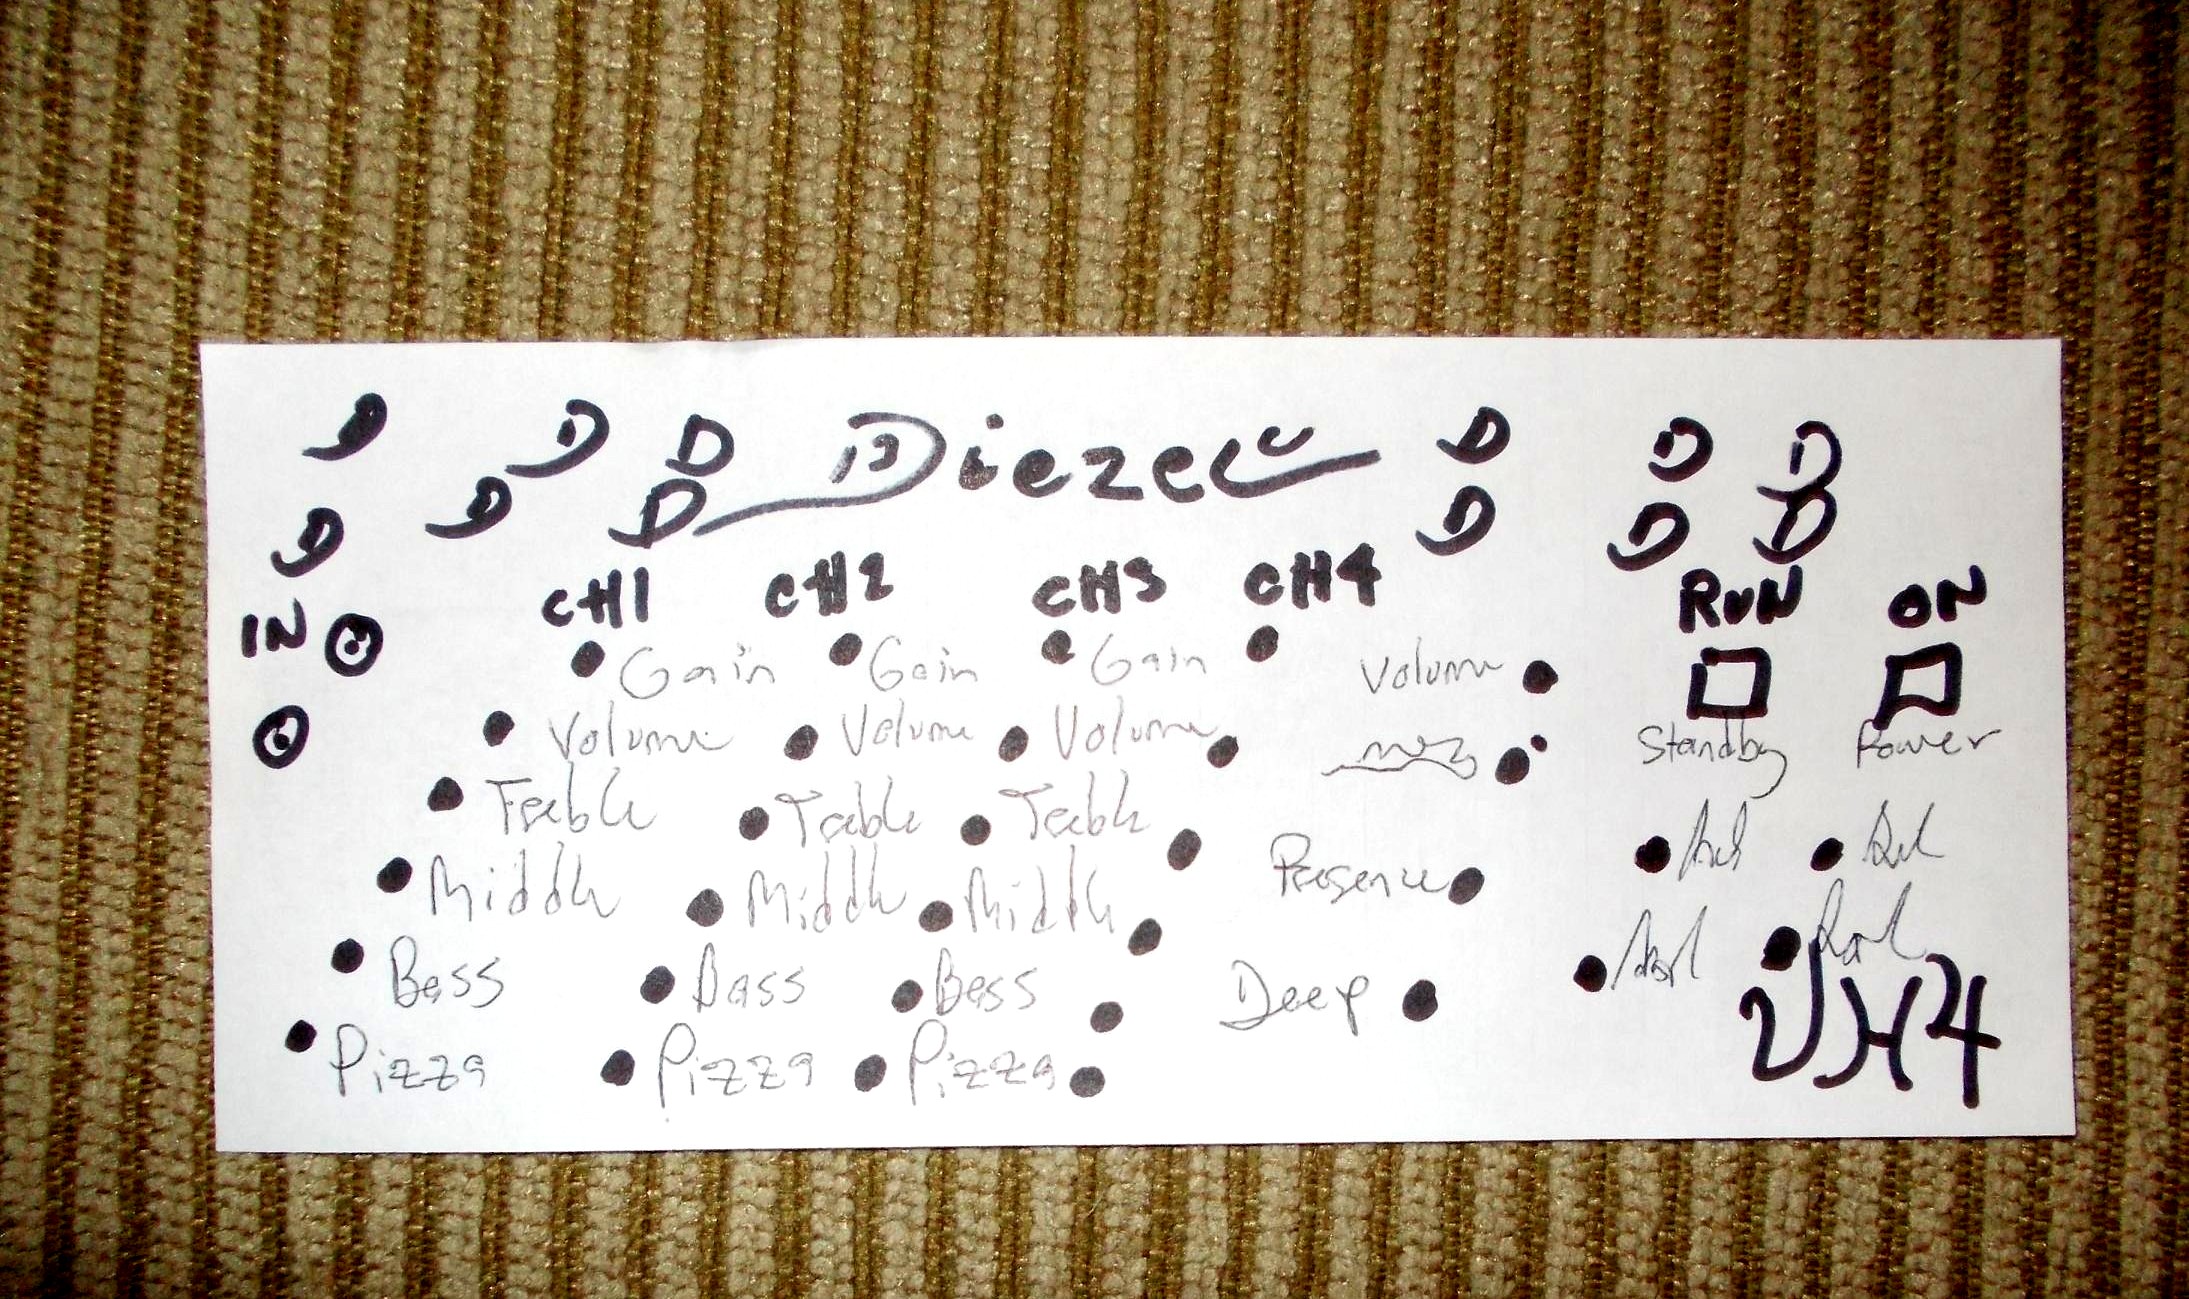 D D D Diezel D D D
D D D D D D
CH1 CH2 CH3 CH4 RUN ON
IN
Gain Gain Gain Volume
Volume Volume Volume Standby Power
Treble Treble Treble
Middle Middle Middle Presence
Bass Bass Bass Deep
Pizza Pizza Pizza VH4